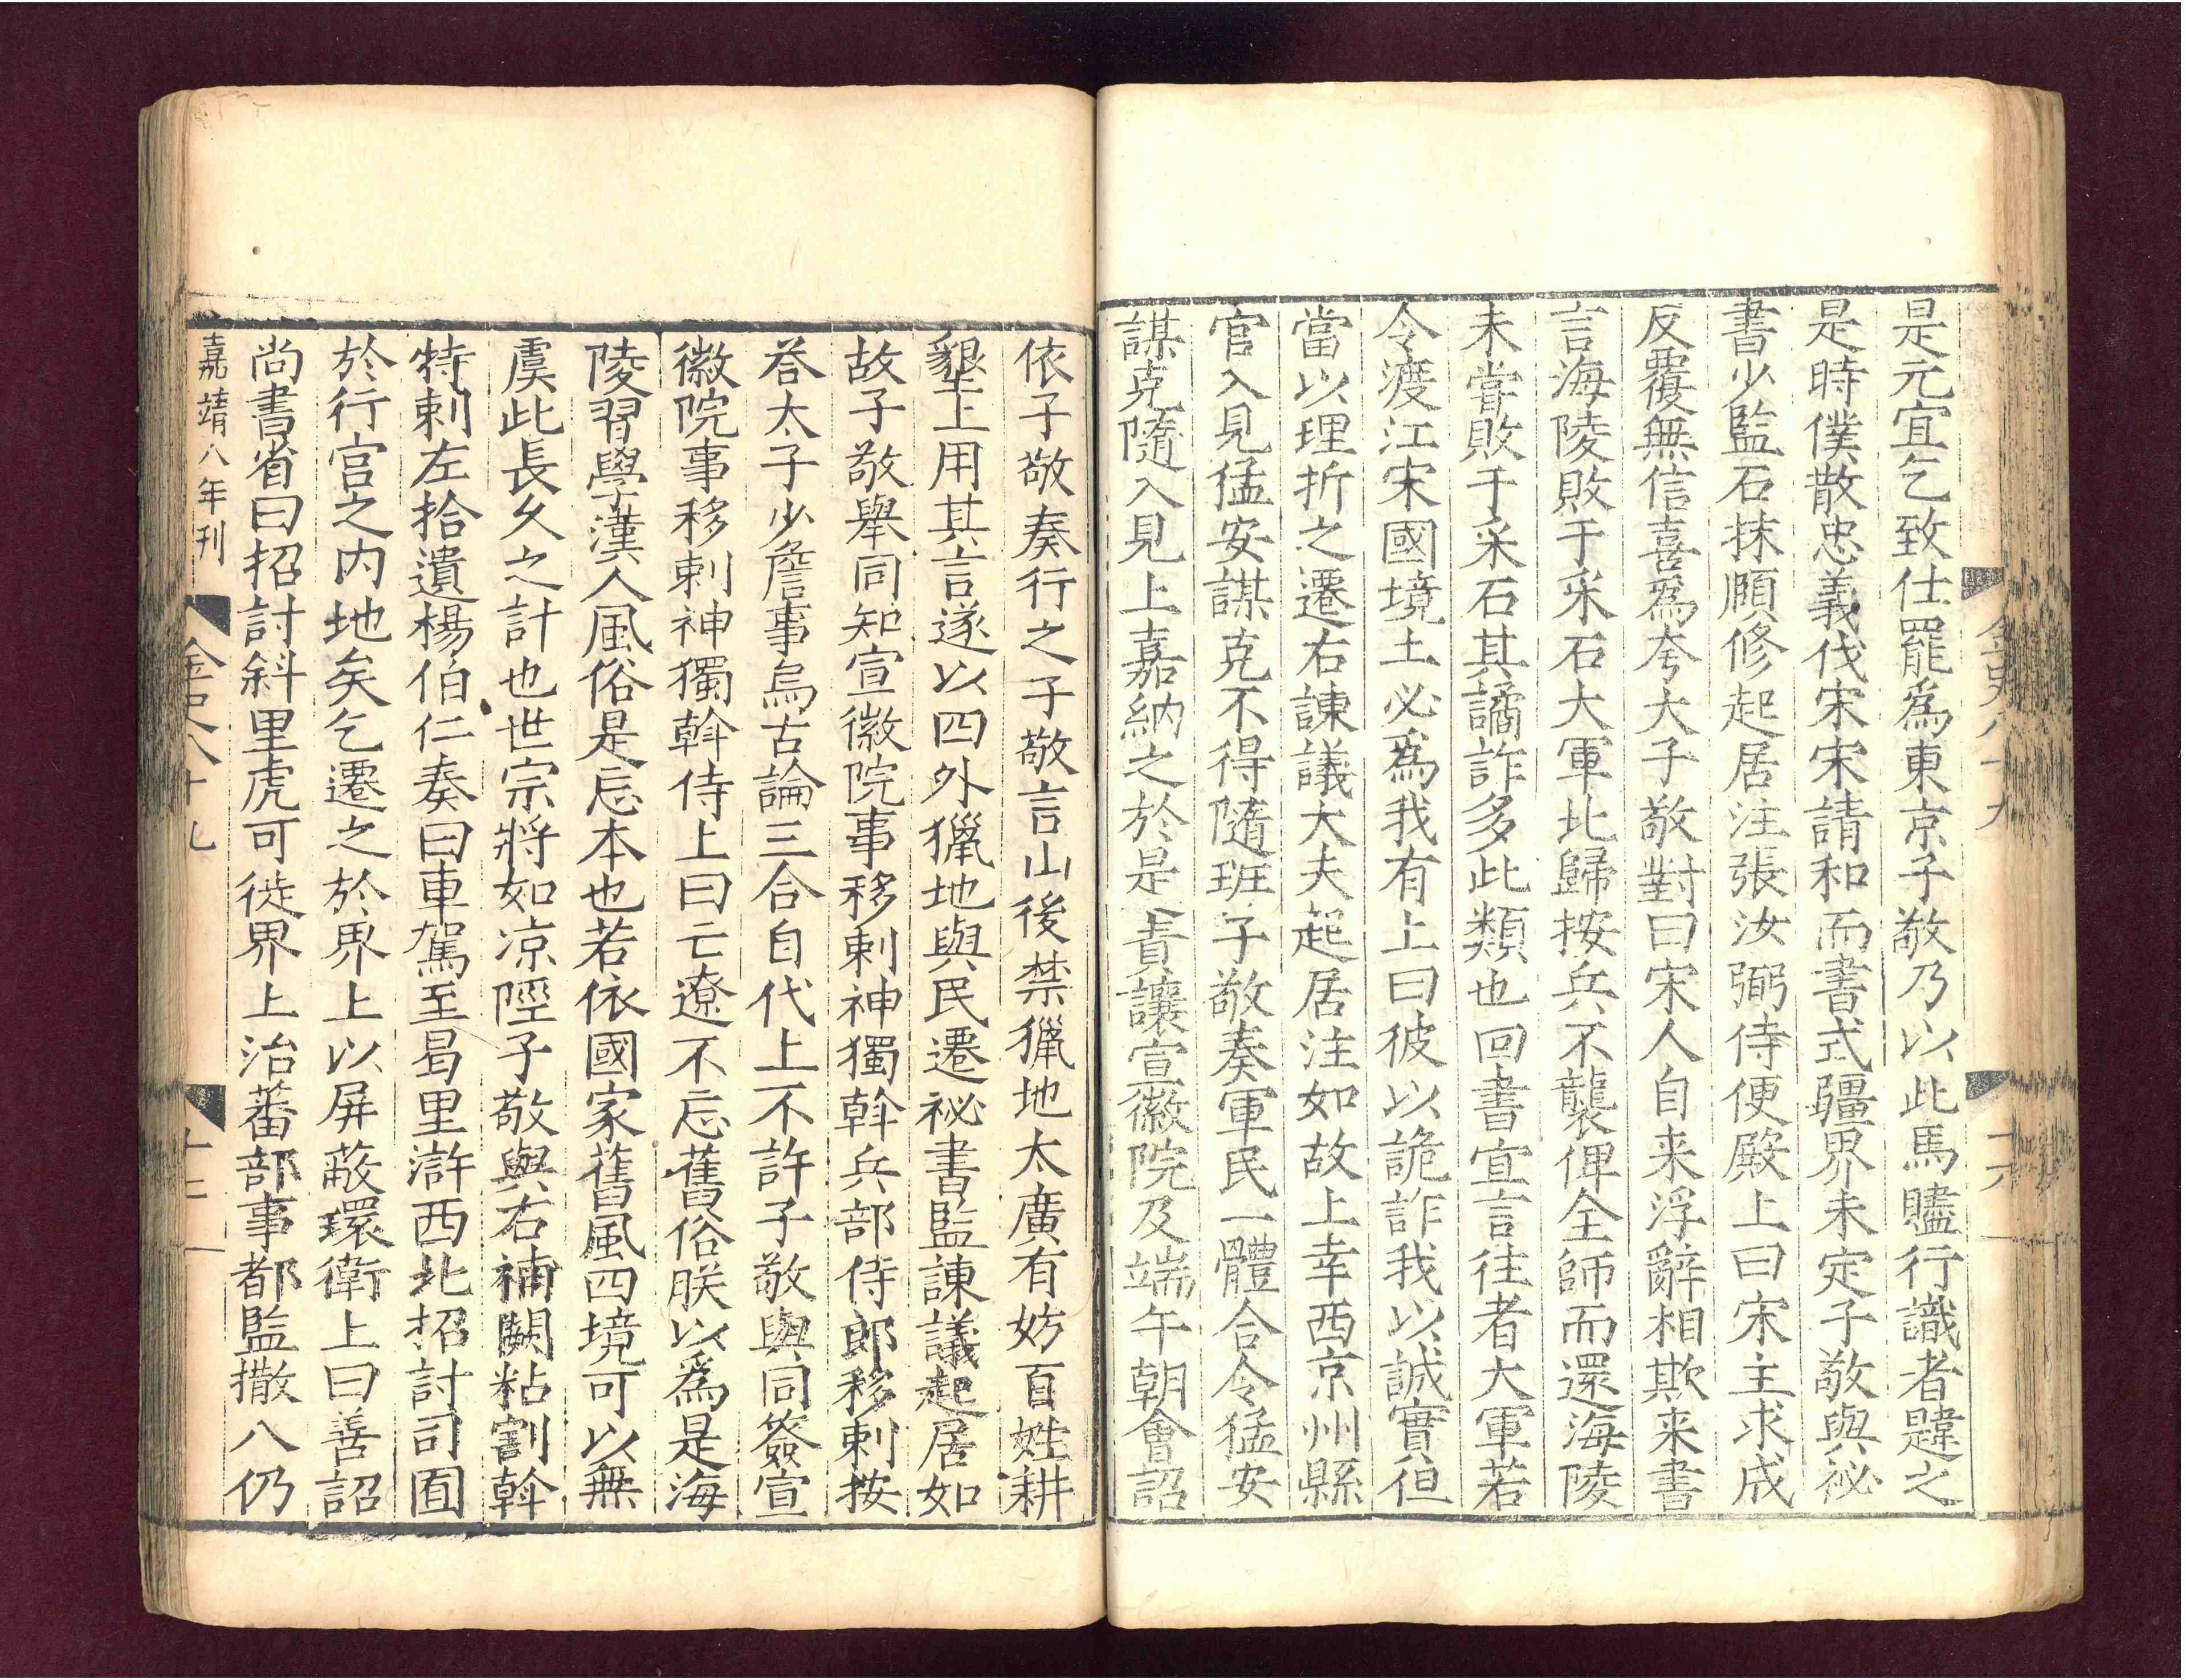 金史八十九
是元宜乞致仕罷爲東京子敬乃以此馬贐行識者韙之
是時僕散忠義伐宋宋請和而書式疆界未定子敬與祕
書少監石抹頤修起居注張汝弼侍便殿上曰宋主求成
反覆無信喜爲夸大子敬對曰宋人自来浮辭相欺来書
言海陵敗于采石大軍北歸按兵不襲俾全師而還海陵
未嘗敗于采石其譎詐多此類也回書宜言往者大軍若
令渡江宋國境土必爲我有上曰彼以詭詐我以誠實但
當以理折之遷右諫議大夫起居注如故上幸西京州縣
官入見猛安謀克不得隨班子敬奏軍民一體合令猛安
謀克隨入見上嘉納之於是責讓宣徽院及端午朝會詔
依子敬奏行之子敬言山後禁獵地太廣有妨百姓耕
墾上用其言遂以四外獵地與民遷祕書監諫議起居如
故子敬舉同知宣徽院事移剌神獨斡兵部侍郎移剌按
荅太子少詹事烏古論三合自代上不許子敬與同簽宣
徽院事移剌神獨斡侍上曰亡遼不忘舊俗朕以爲是海
陵習學漢人風俗是忘本也若依國家舊風四境可以無
虞此長久之計也世宗將如凉陘子敬與右補闕粘割斡
特剌左拾遺楊伯仁奏曰車駕至曷里滸西北招討司囿
於行宫之内地矣乞遷之於界上以屏蔽環衛上曰善詔
尚書省曰招討斜里虎可徙界上治蕃部事都監撒八仍
嘉靖八年刊
金史八十九